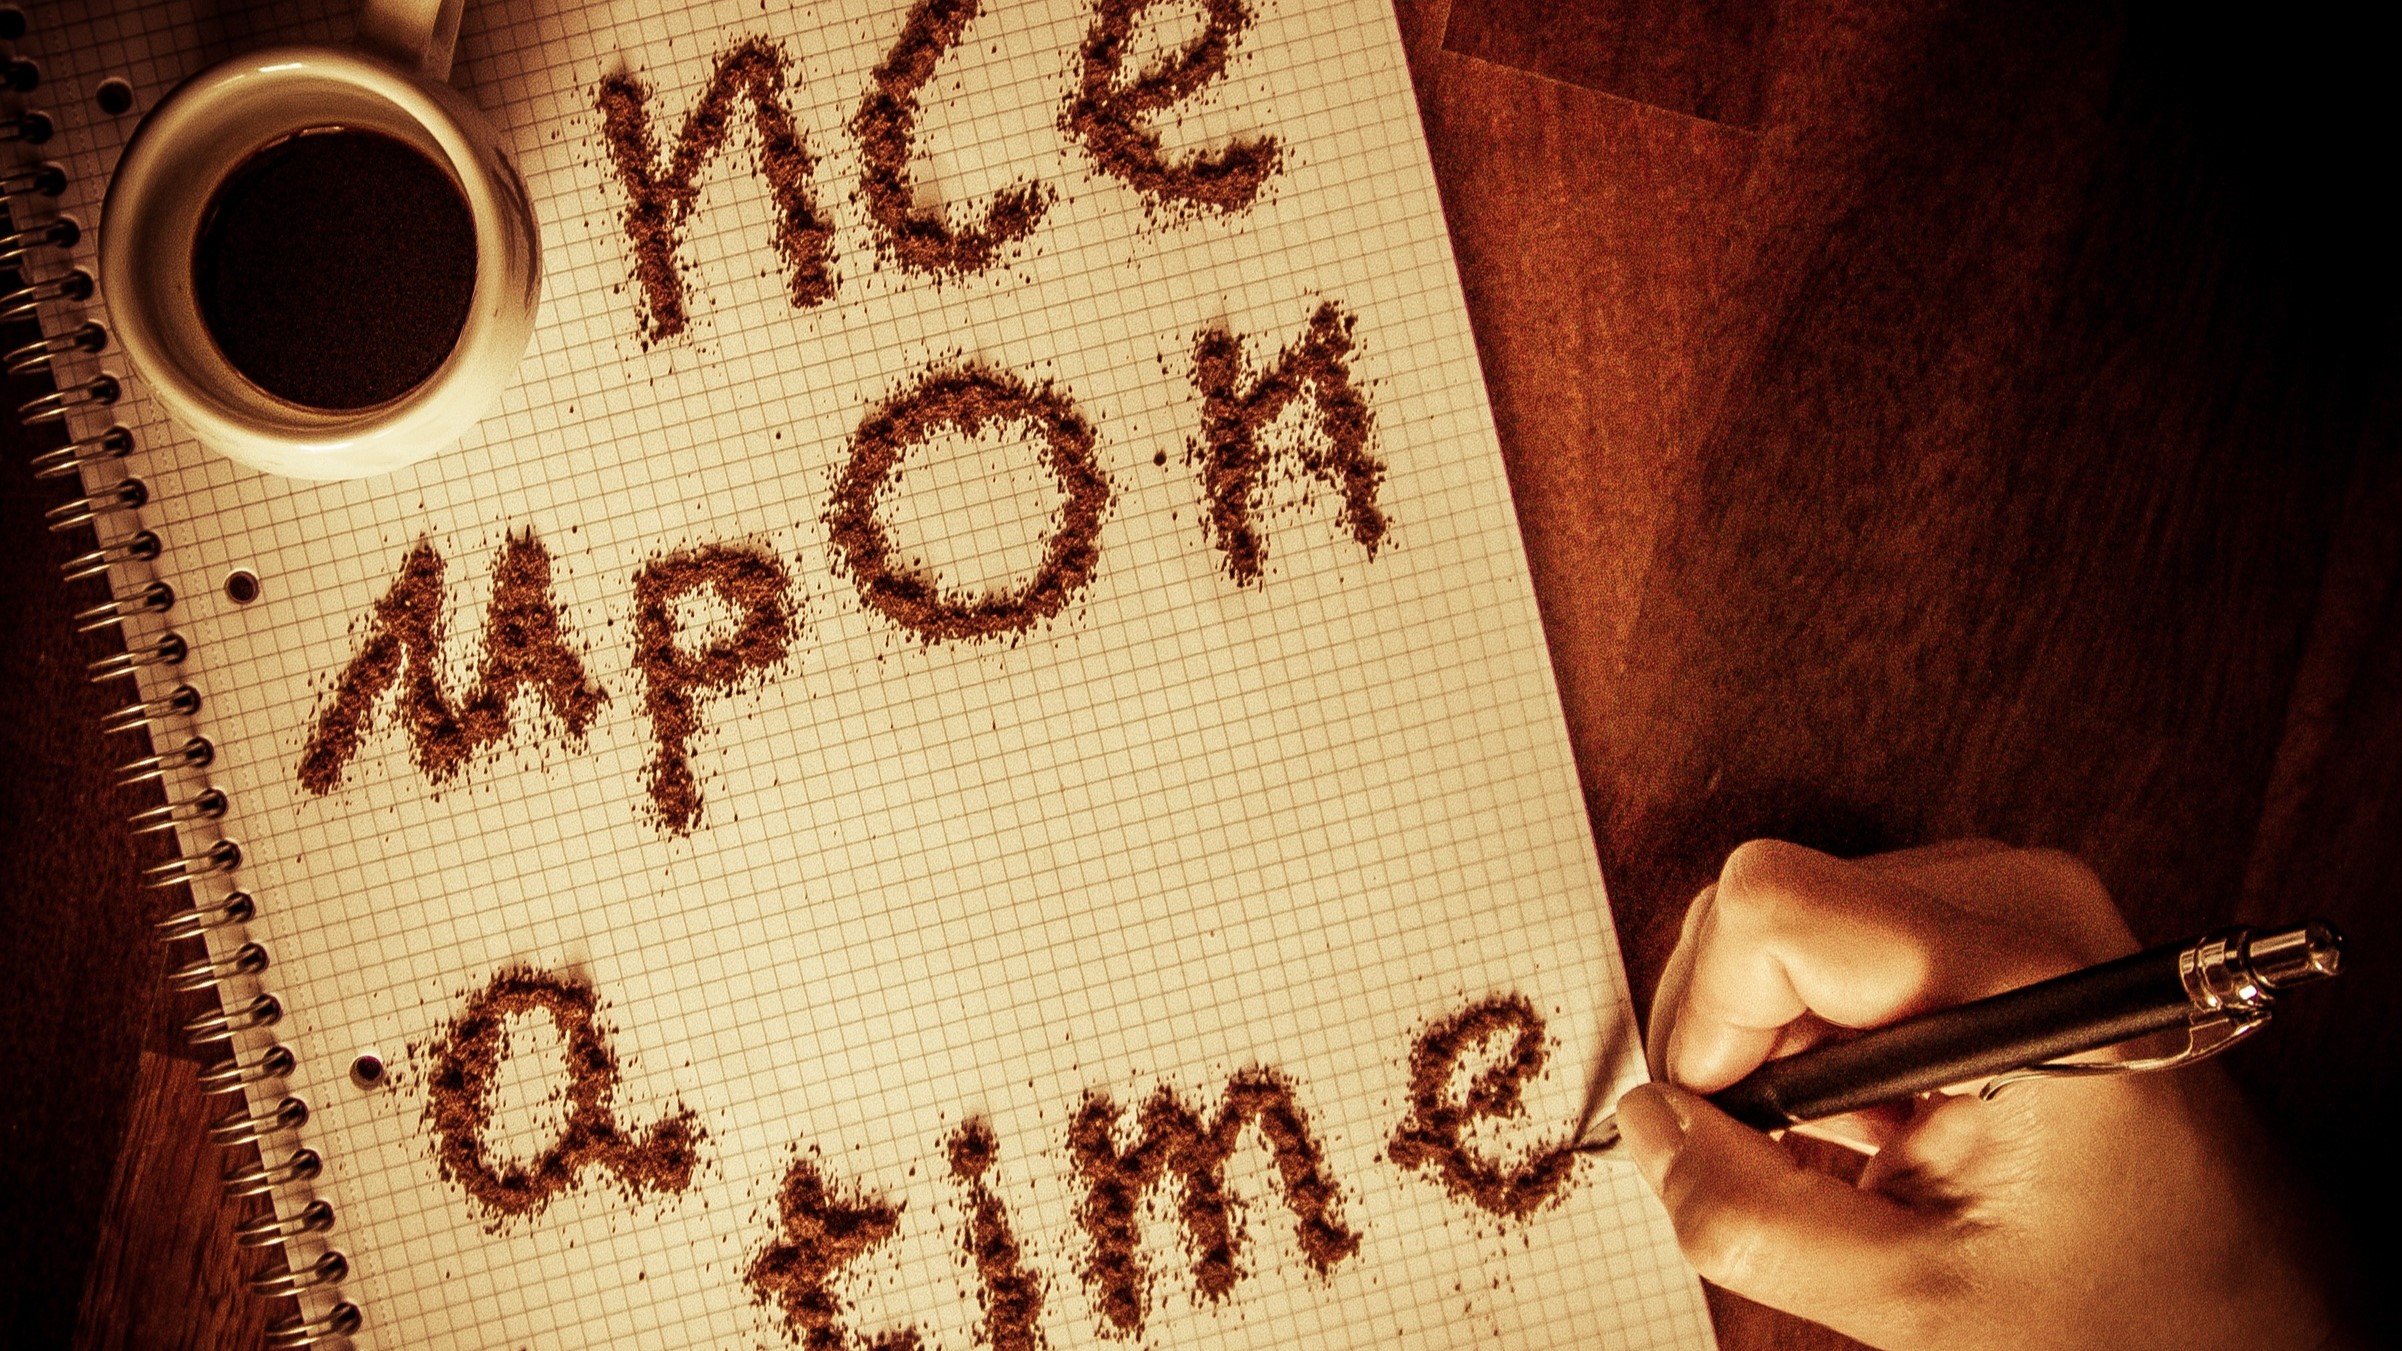 nce
upon
a time